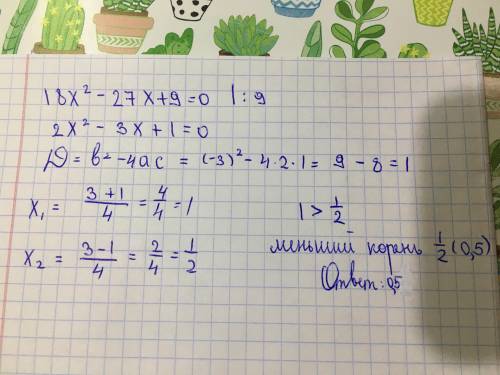 18x² - 27x + 9 = 0 | : 9
2x² - 3x + 1 = 0
D = b² - 4ac = (-3)² - 4·2·1 = 9 - 8 = 1
x₁ = (3+1)/4 = 4/4 = 1
1 > 1/2
x₂ = (3-1)/4 = 2/4 = 1/2
меньший корень 1/2 (0,5)
Ответ: 0,5